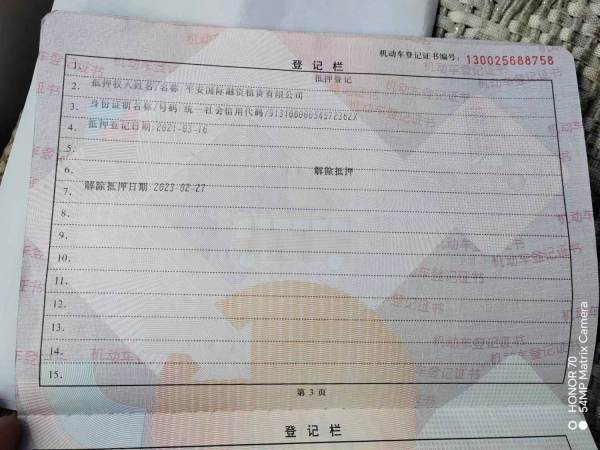 机动车登记证书编号：130025688758
登记栏
1. 抵押登记
2. 抵押权人姓名/名称:平安国际融资租赁有限公司
3. 身份证明名称/号码:统一社会信用代码/91310000054572362X
4. 抵押登记日期:2021-03-16
5.
6. 解除抵押
7. 解除抵押日期:2023-02-27
8.
9.
10.
11.
12.
13.
14.
15.
第 3 页
登记栏
HONOR 70
54MP Matrix Camera